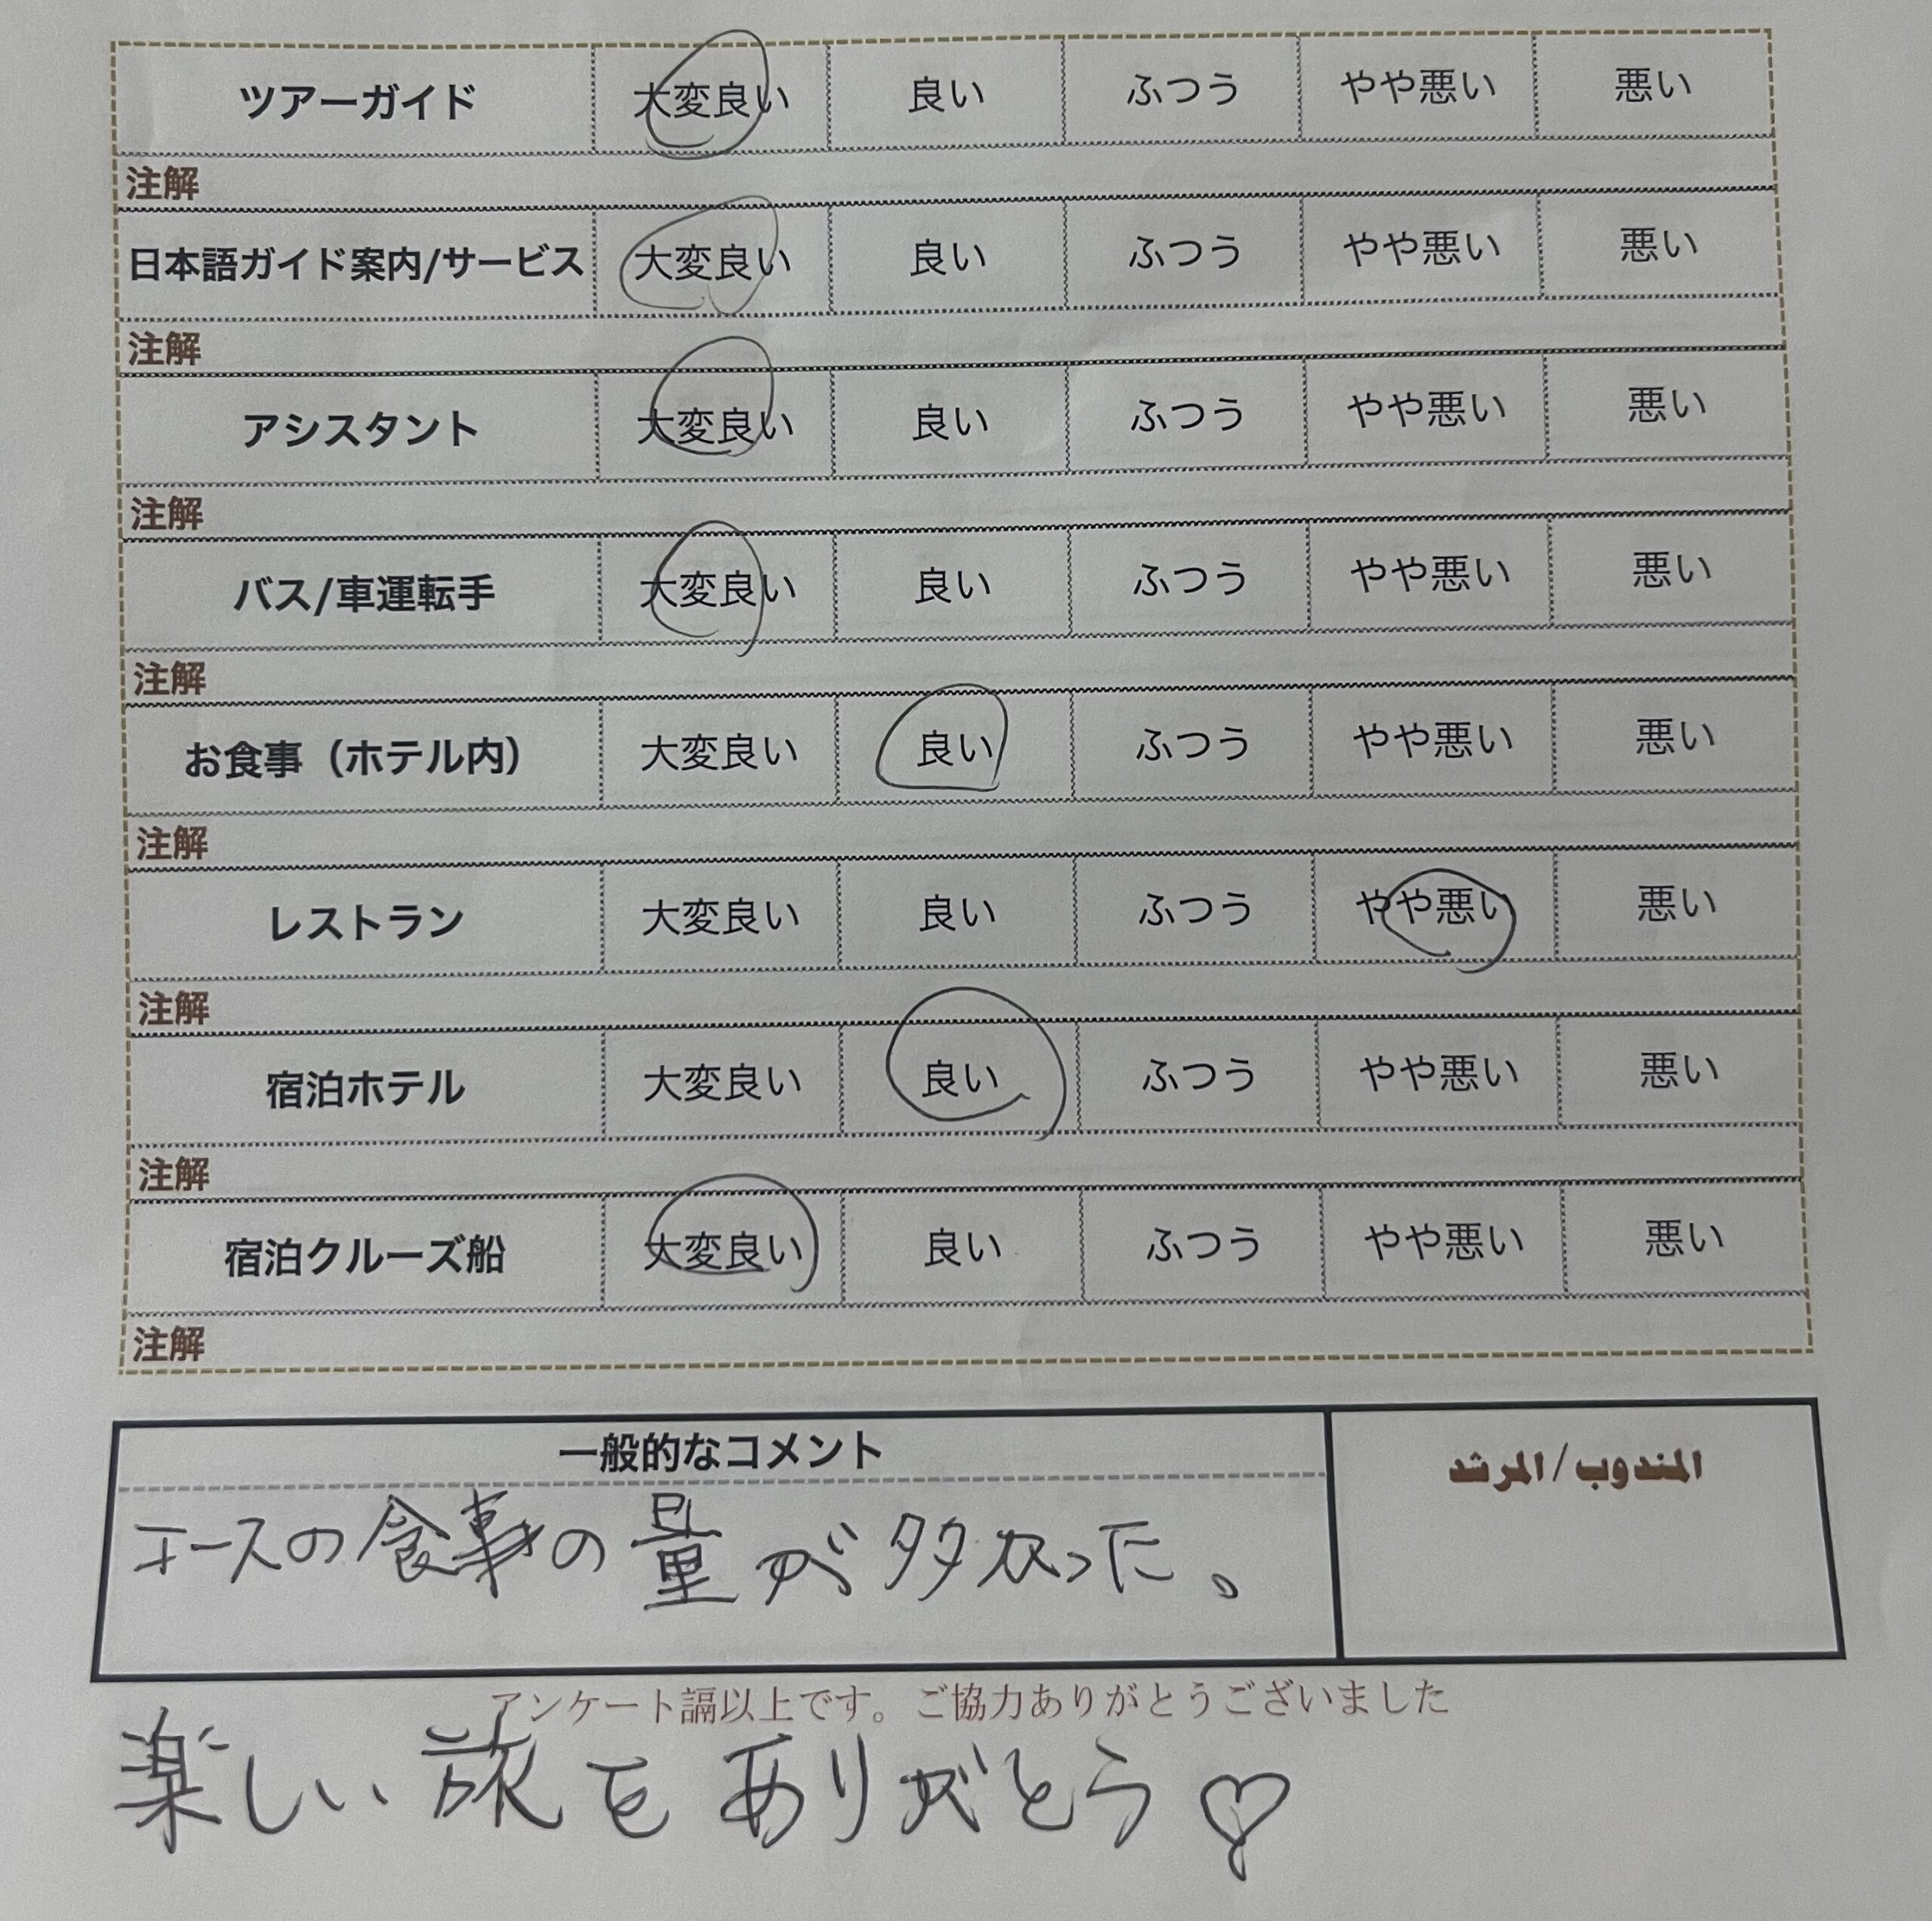 ツアーガイド 大変良い 良い ふつう やや悪い 悪い
注解
日本語ガイド案内/サービス 大変良い 良い ふつう やや悪い 悪い
注解
アシスタント 大変良い 良い ふつう やや悪い 悪い
注解
バス/車運転手 大変良い 良い ふつう やや悪い 悪い
注解
お食事（ホテル内） 大変良い 良い ふつう やや悪い 悪い
注解
レストラン 大変良い 良い ふつう やや悪い 悪い
注解
宿泊ホテル 大変良い 良い ふつう やや悪い 悪い
注解
宿泊クルーズ船 大変良い 良い ふつう やや悪い 悪い
注解
一般的なコメント
の食事の量が多かった。
المندوب/المرشد
アンケート謳以上です。ご協力ありがとうございました
楽しい旅をありがとう♡